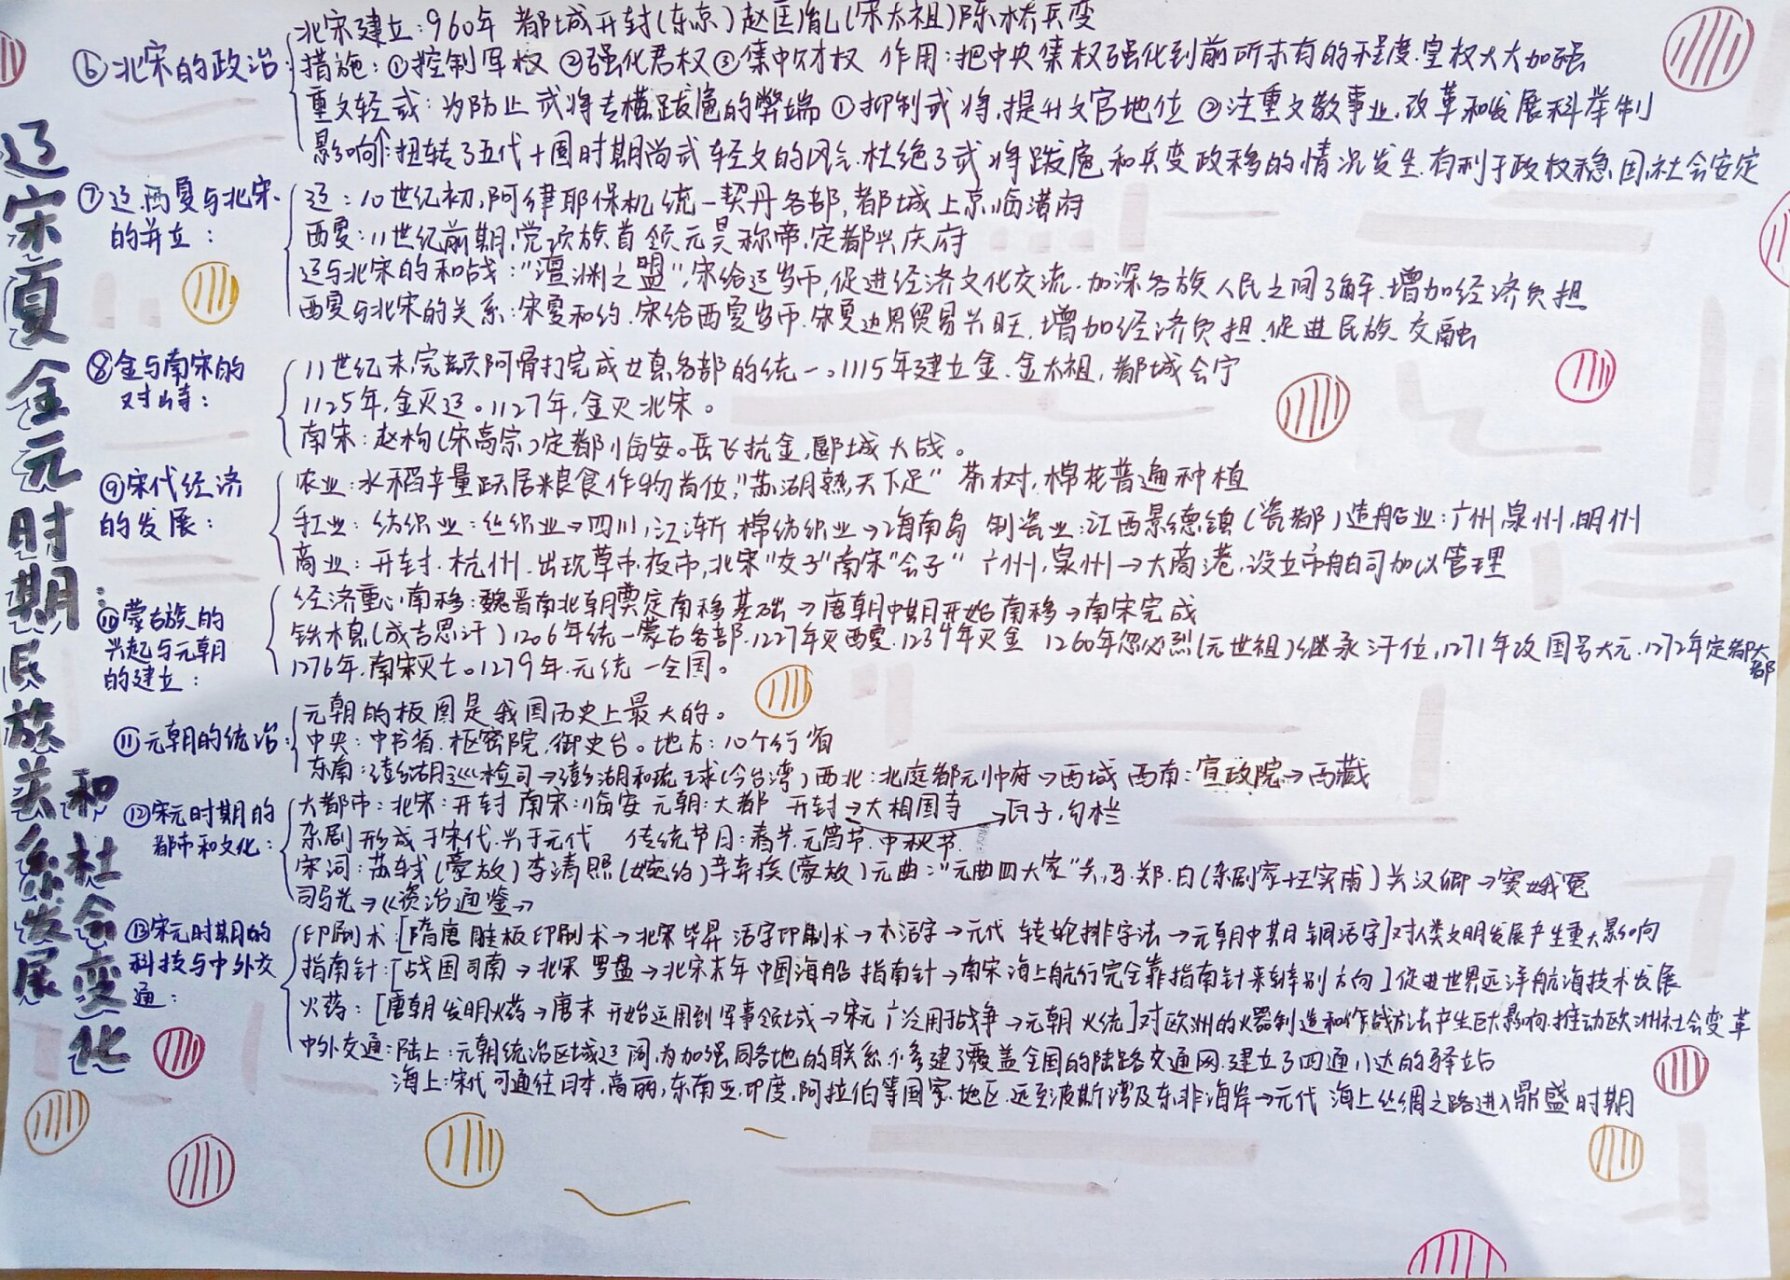 辽宋夏金元时期民族关系发展
和社会变化
⑥北宋的政治:
北宋建立:960年 都城开封(东京)赵匡胤(宋太祖)陈桥兵变
措施:①控制军权 ②强化君权③集中财权 作用:把中央集权强化到前所未有的程度.皇权大大加强
重文轻武:为防止武将专横跋扈的弊端①抑制武将,提升文官地位 ②注重文教事业,改革和发展科举制
影响:扭转了五代十国时期尚武轻文的风气.杜绝了武将跋扈和兵变政移的情况发生.有利于政权稳固,社会安定
⑦辽西夏与北宋
的并立:
辽:10世纪初,阿律耶保机统一契丹各部,都城上京临潢府
西夏:11世纪前期,党项族首领元昊称帝,定都兴庆府
辽与北宋的和战:"澶渊之盟",宋给辽岁币,促进经济文化交流.加深各族人民之间了解.增加经济负担
西夏与北宋的关系:宋夏和约.宋给西夏岁币.宋夏边界贸易兴旺.增加经济负担.促进民族交融
⑧金与南宋的
对峙:
11世纪末,完颜阿骨打完成女真各部的统一。1115年建立金.金太祖,都城会宁
1125年,金灭辽。1127年,金灭北宋。
南宋:赵构(宋高宗)定都临安。岳飞抗金,郾城大战。
⑨宋代经济
的发展:
农业:水稻产量跃居粮食作物首位,"苏湖熟,天下足" 茶树,棉花普遍种植
手工业:纺织业:丝织业→四川,江浙 棉纺织业→海南岛 制瓷业:江西景德镇(瓷都)造船业:广州,泉州,明州
商业:开封.杭州.出现草市.夜市,北宋"交子"南宋"会子" 广州,泉州→大商港.设立市舶司加以管理
经济重心南移:魏晋南北朝奠定南移基础→唐朝中期开始南移→南宋完成
⑩蒙古族的
兴起与元朝
的建立:
铁木真(成吉思汗)1206年统一蒙古各部.1227年灭西夏.1234年灭金 1260年忽必烈(元世祖)继承汗位,1271年改国号大元.1272年定都大都
1276年.南宋灭亡。1279年.元统一全国。
⑪元朝的统治:
元朝的版图是我国历史上最大的。
中央:中书省.枢密院,御史台。地方:10个行省
东南:澎湖巡检司→澎湖和琉球(今台湾)西北:北庭都元帅府→西域 西南:宣政院→西藏
⑫宋元时期的
都市和文化:
大都市:北宋:开封 南宋:临安 元朝:大都 开封→大相国寺→瓦子,勾栏
杂剧形成于宋代.兴于元代 传统节日:春节.元宵节.中秋节.
宋词:苏轼(豪放)李清照(婉约)辛弃疾(豪放)元曲:"元曲四大家"关,马.郑.白(杂剧家+王实甫)关汉卿→窦娥冤
司马光→《资治通鉴》
⑬宋元时期的
科技与中外交
通:
印刷术:[隋唐 雕板印刷术→北宋毕昇 活字印刷术→木活字→元代 转轮排字法→元朝中期铜活字]对人类文明发展产生重大影响
指南针:[战国司南→北宋 罗盘→北宋末年 中国海船 指南针→南宋海上航行完全靠指南针来辨别方向]促进世界远洋航海技术发展
火药:[唐朝发明火药→唐末 开始运用到军事领域→宋元 广泛用于战争→元朝 火铳]对欧洲的火器制造和作战方法产生巨大影响.推动欧洲社会变革
中外交通:陆上:元朝统治区域辽阔,为加强同各地的联系.修建了覆盖全国的陆路交通网.建立了四通八达的驿站
海上:宋代可通往日本,高丽,东南亚.印度,阿拉伯等国家.地区.远至波斯湾及东非海岸→元代 海上丝绸之路进入鼎盛时期